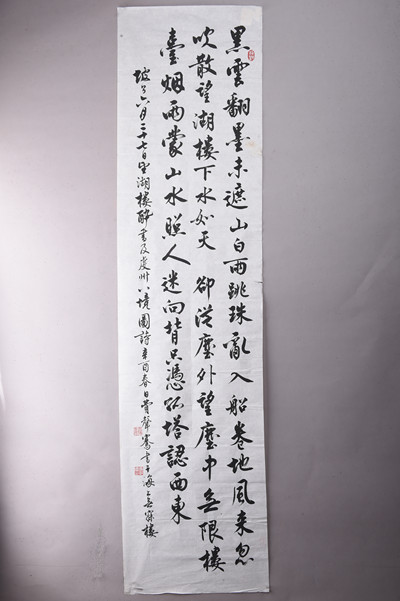 黑雲翻墨未遮山白雨跳珠亂入船卷地風来忽
吹散望湖樓下水如天卻從塵外望塵中無限樓
臺烟雨蒙山水照人迷向背只憑孤塔認西東
坡公六月二十七日望湖樓醉書及虔州八境圖詩辛酉春日 聲騫書于海上 寐樓